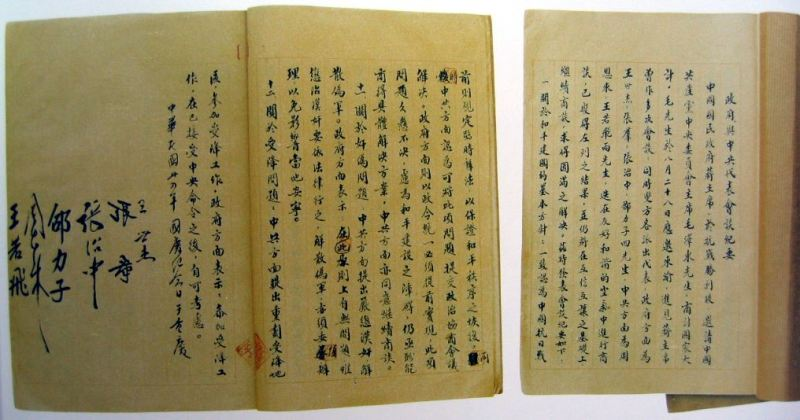 政府與中共代表會談紀要
中國國民政府蔣主席，於抗戰勝利後，邀請中國
共產黨中央委員會主席毛澤東先生，商討國家大
計，毛先生於八月二十八日應邀來渝，進見蔣主席
曾作多次會談，同時雙方各派出代表，政府方面為
王世杰，張羣，張治中，邵力子四先生，中共方面為周
恩來，王若飛兩先生，迭在友好和諧的空氣中進行商
談，已獲得左列之結果，並仍將在互信互讓之基礎上
繼續商談，求得圓滿之解決。茲特發表會談紀要如下：
一 關於和平建國的基本方針：一致認為中國抗日戰
前則規定臨時辦法，以保證和平秩序之恢復，
中共方面認為可將此項問題提交政治協商會議
解決，政府方面則以政令統一必須提前實現，此項
問題久懸不決，慮為和平建設之障碍，仍亟盼能
商得具體解決方案，中共方面亦同意繼續商談。
十一 關於奸偽問題，中共方面提出嚴懲漢奸解
散偽軍。政府方面表示，在原則上自無問題，惟
懲治漢奸要依法律行之，解散偽軍，亦須妥慎辦
理以免影響當地安寧。
十二 關於受降問題，中共方面提出重劃受降地
區，參加受降工作，政府方面表示，參加受降工
作，在已接受中央命令之後，自可考慮。
中華民國卅四年國慶紀念日于重慶
王世杰
張羣
張治中
邵力子
周恩來
王若飛